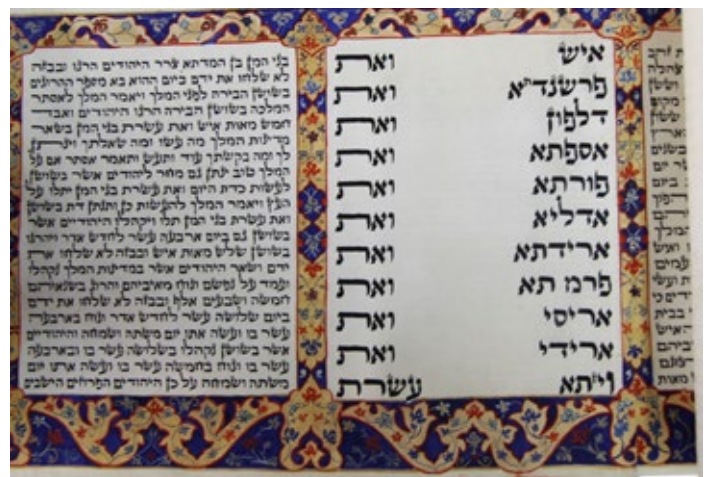 בשנים
יום
ביום
המלך
ואיש
עמים
ועשי
בבית
האיש
מאות
איש ואת
פרשנדתא ואת
דלפון ואת
אספתא ואת
פורתא ואת
אדליא ואת
ארידתא ואת
פרמ תא ואת
אריסי ואת
ארידי ואת
ויזתא עשרת
בני המן בן המדתא צרר היהודים הרגו ובבזה
לא שלחו את ידם ביום ההוא בא מספר ההרוגים
בשושן הבירה לפני המלך ויאמר המלך לאסתר
המלכה בשושן הבירה הרגו היהודים ואבד
חמש מאות איש ואת עשרת בני המן בשאר
מדינות המלך מה עשו ומה שאלתך וינתן
לך ומה בקשתך עוד ותעש ותאמר אסתר אם על
המלך טוב ינתן גם מחר ליהודים אשר בשושן
לעשות כדת היום ואת עשרת בני המן יתלו על
העץ ויאמר המלך להעשות כן ותנתן דת בשושן
ואת עשרת בני המן תלו ויקהלו היהודיים אשר
בשושן גם ביום ארבעה עשר לחדש אדר ויהרגו
בשושן שלש מאות איש ובבזה לא שלחו את
ידם ושאר היהודים אשר במדינות המלך נקהלו
ועמד על נפשם ונוח מאיביהם והרוג בשנאיהם
חמשה ושבעים אלף ובבזה לא שלחו את ידם
ביום שלושה עשר לחדש אדר ונוח בארבעה
עשר בו ועשה אתו יום משתה ושמחה והיהודיים
אשר בשושן נקהלו בשלושה עשר בו ובארבעה
עשר בו ונוח בחמשה עשר בו ועשה אתו יום
משתה ושמחה על כן היהודים הפרוזים הישבים